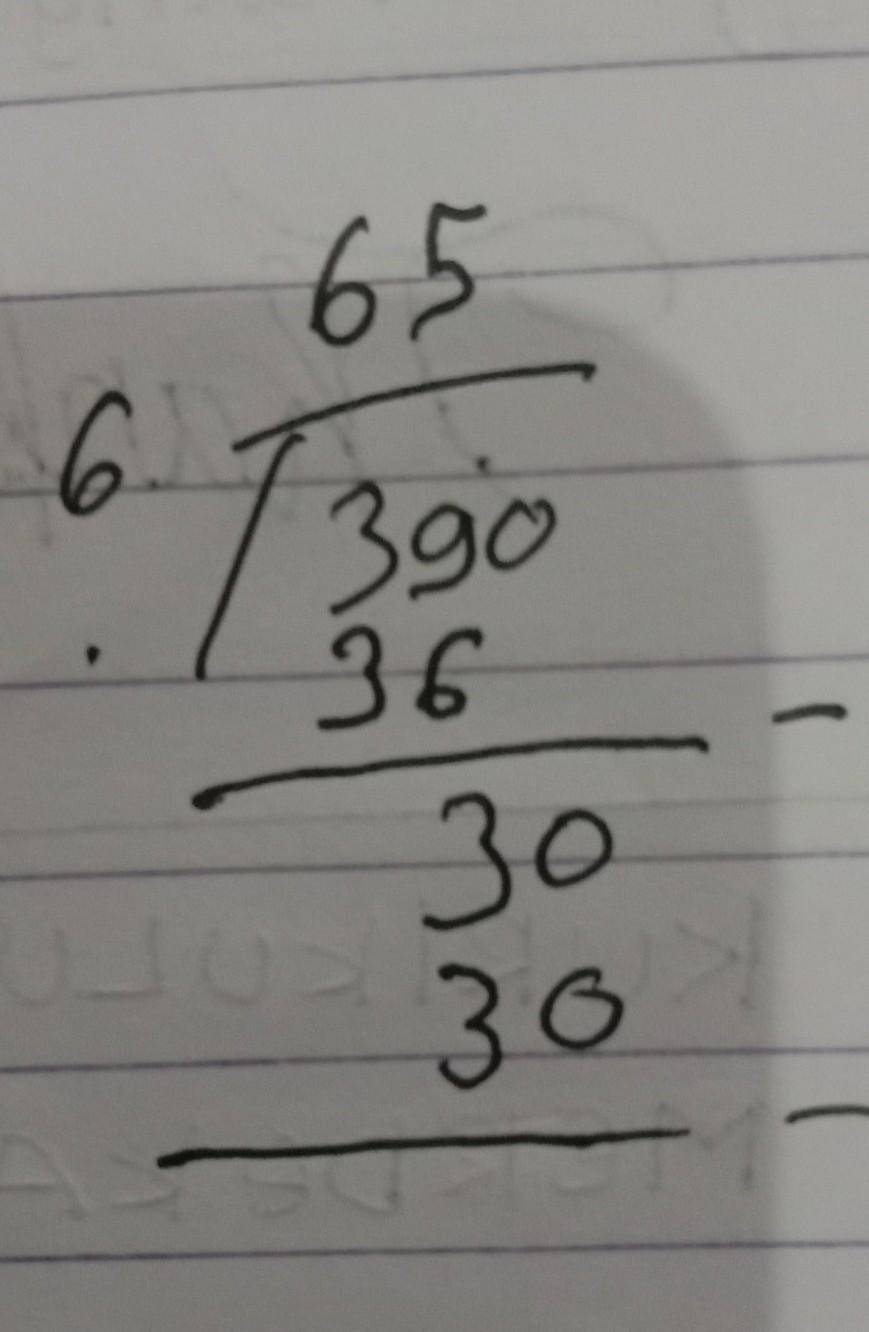 65
6
390
36
-
30
30
-